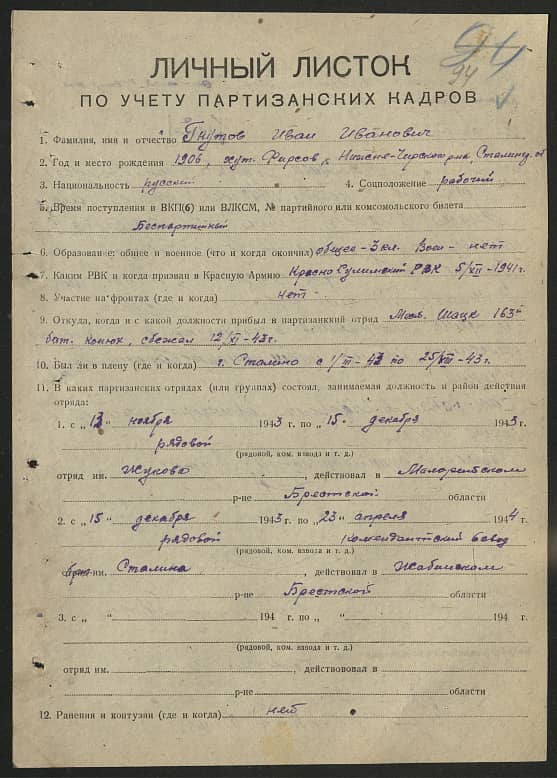 94
94
ЛИЧНЫЙ ЛИСТОК
ПО УЧЕТУ ПАРТИЗАНСКИХ КАДРОВ
1. Фамилия, имя и отчество Гнутов Иван Иванович
2. Год и место рождения 1906, хут. Фирсов, Нижне-Чирск. Сталингр. об
3. Национальность русский 4. Соцположение рабочий
5. Время поступления в ВКП(б) или ВЛКСМ, № партийного или комсомольского билета
Беспартийный
6. Образование: общее и военное (что и когда окончил) общее - 3 кл. Воен - нет
7. Каким РВК и когда призван в Красную Армию Красно Сулинский РВК 5/XII - 1941 г.
8. Участие на фронтах (где и когда) нет -
9. Откуда, когда и с какой должности прибыл в партизанский отряд Шацк 163й
бат. конюх, сбежал 12/XI - 43 г.
10. Был ли в плену (где и когда) г. Сталино с 1/III - 43 по 25/ - 43 г.
11. В каких партизанских отрядах (или группах) состоял, занимаемая должность и район действия
отряда:
1. с „13" ноября 1943 г. по „15. декабря 1943 г.
рядовой
(рядовой, ком. взвода и т. д.)
отряд им. Жукова, действовал в Малоритском
р-не Брестской области
2. с „15" декабря 1943 г. по „23" апреля 1944 г.
рядовой комендантский взвод
(рядовой, ком. взвода и т. д.)
им. Сталина, действовал в Жабинском
р-не Брестской области
3. с „ " 194 г. по „ " 194 г.
(рядовой, ком. взвода и т. д.)
отряд им. , действововал в
р-не области
12. Ранения и контузии (где и когда) нет